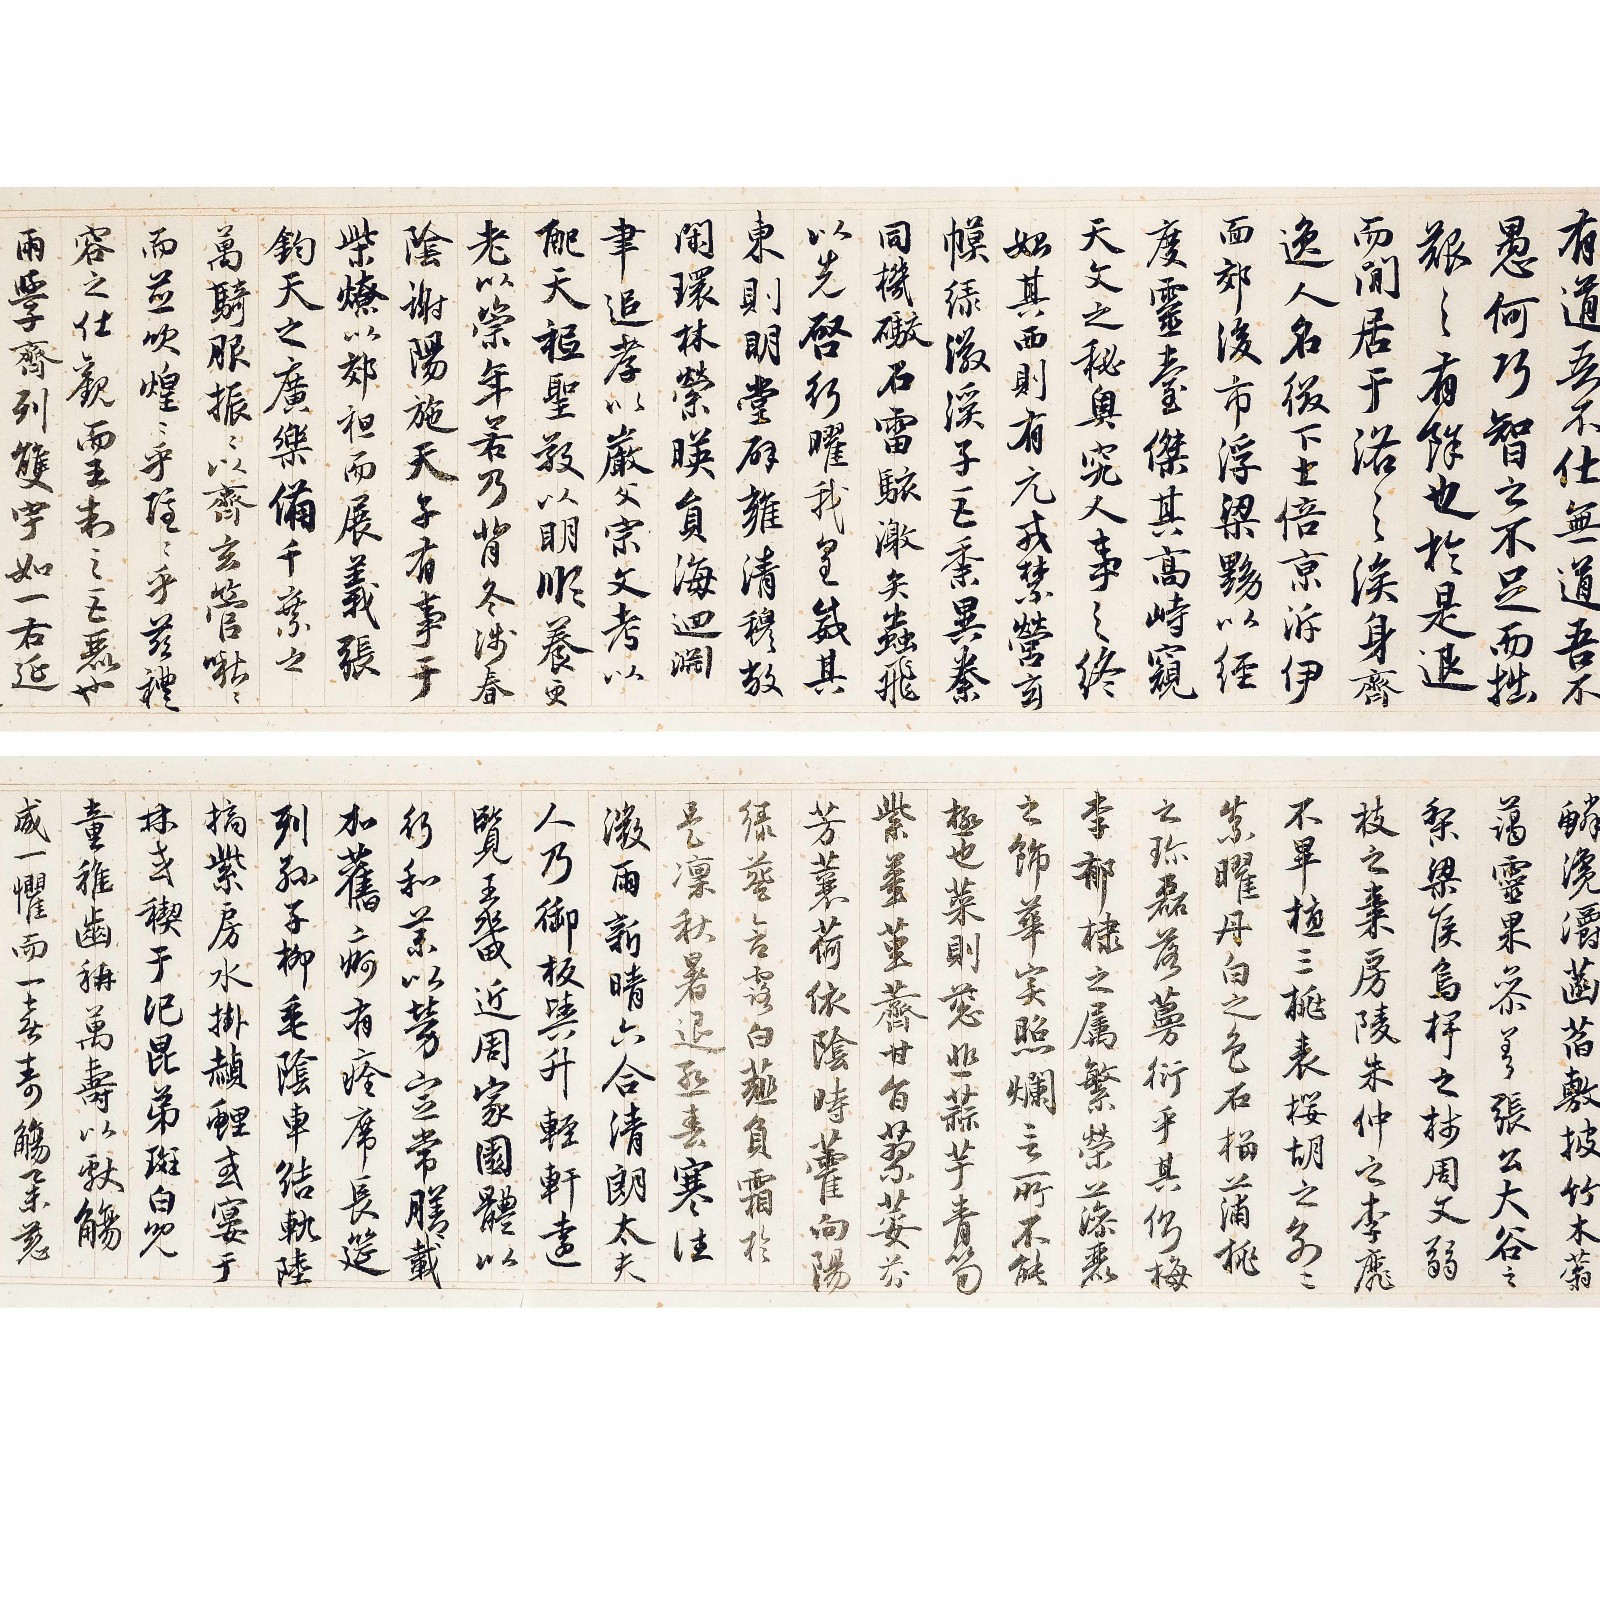 有道吾不仕無道吾不
愚何巧智之不足而拙
艱之有餘也於是退
而閒居于洛之涘身齊
逸人名綴下士倍京泝伊
面郊後市浮梁黝以經
度靈臺傑其高峙窺
天文之秘奥究人事之終
始其西則有元戎禁營玄
幙緑徽溪子巨黍異絭
同機礮石雷駭激矢蝱飛
以先啓行曜我皇威其
東則明堂辟雍清穆敞
閑環林縈暎員海迴淵
聿追孝以嚴父宗文考以
配天秪聖敬以明順養更
老以崇年若乃背冬涉春
陰謝陽施天子有事于
柴燎以郊祖而展義張
鈞天之廣樂備千乗之
萬騎服振振以齊玄管啾啾
而並吹煌煌乎隱隱乎兹禮
容之壯觀而王制之巨麗也
兩學齊列雙宇如一右延
鱗瀺灂菡萏敷披竹木蓊
藹靈果參差張公大谷之
梨梁侯烏椑之柿周文弱
枝之棗房陵朱仲之李靡
不畢植三桃表櫻胡之别二
柰曜丹白之色石榴蒲桃
之珍磊落蔓衍乎其側梅
李郁棣之属繁榮藻麗
之飾華実照爛言所不能
極也菜則葱韭蒜芋青筍
紫薑堇薺甘旨蓼荽芬
芳蘘荷依陰時藿向陽
緑葵含露白薤負霜於
是凛秋暑退熙春寒往
微雨新晴六合清朗太夫
人乃御板輿升輕軒遠
覽王畿近周家園體以
行和藥以勞宣常膳載
加舊痾有痊席長筵
列孫子柳垂陰車結軌陸
摘紫房水掛赬鯉或宴于
林或禊于汜昆弟斑白兒
童稚齒稱萬壽以獻觴
咸一懼而一喜壽觴舉慈